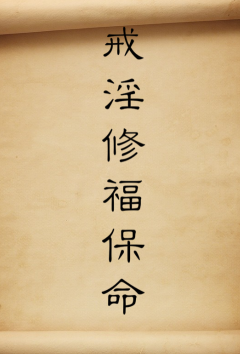 戒淫修福保命